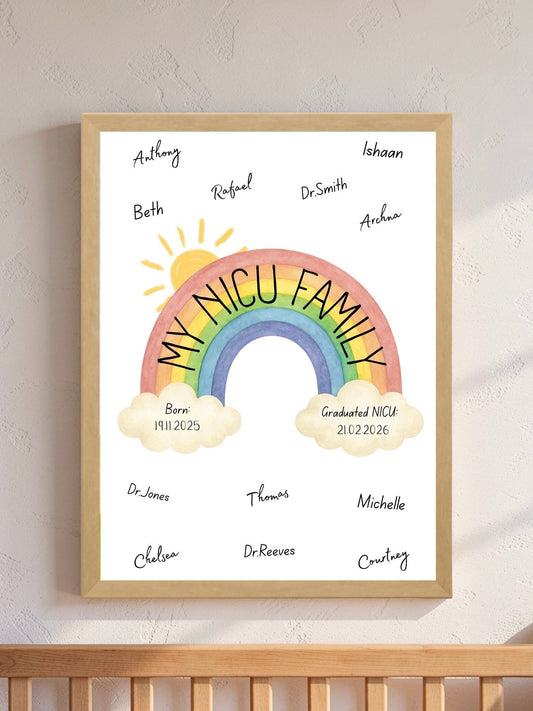 Anthony
Ishaan
Rafael
Dr.Smith
Beth
Archna
MY NICU FAMILY
Born:
19.11.2025
Graduated NICU:
21.02.2026
Dr.Jones
Thomas
Michelle
Chelsea
Dr.Reeves
Courtney